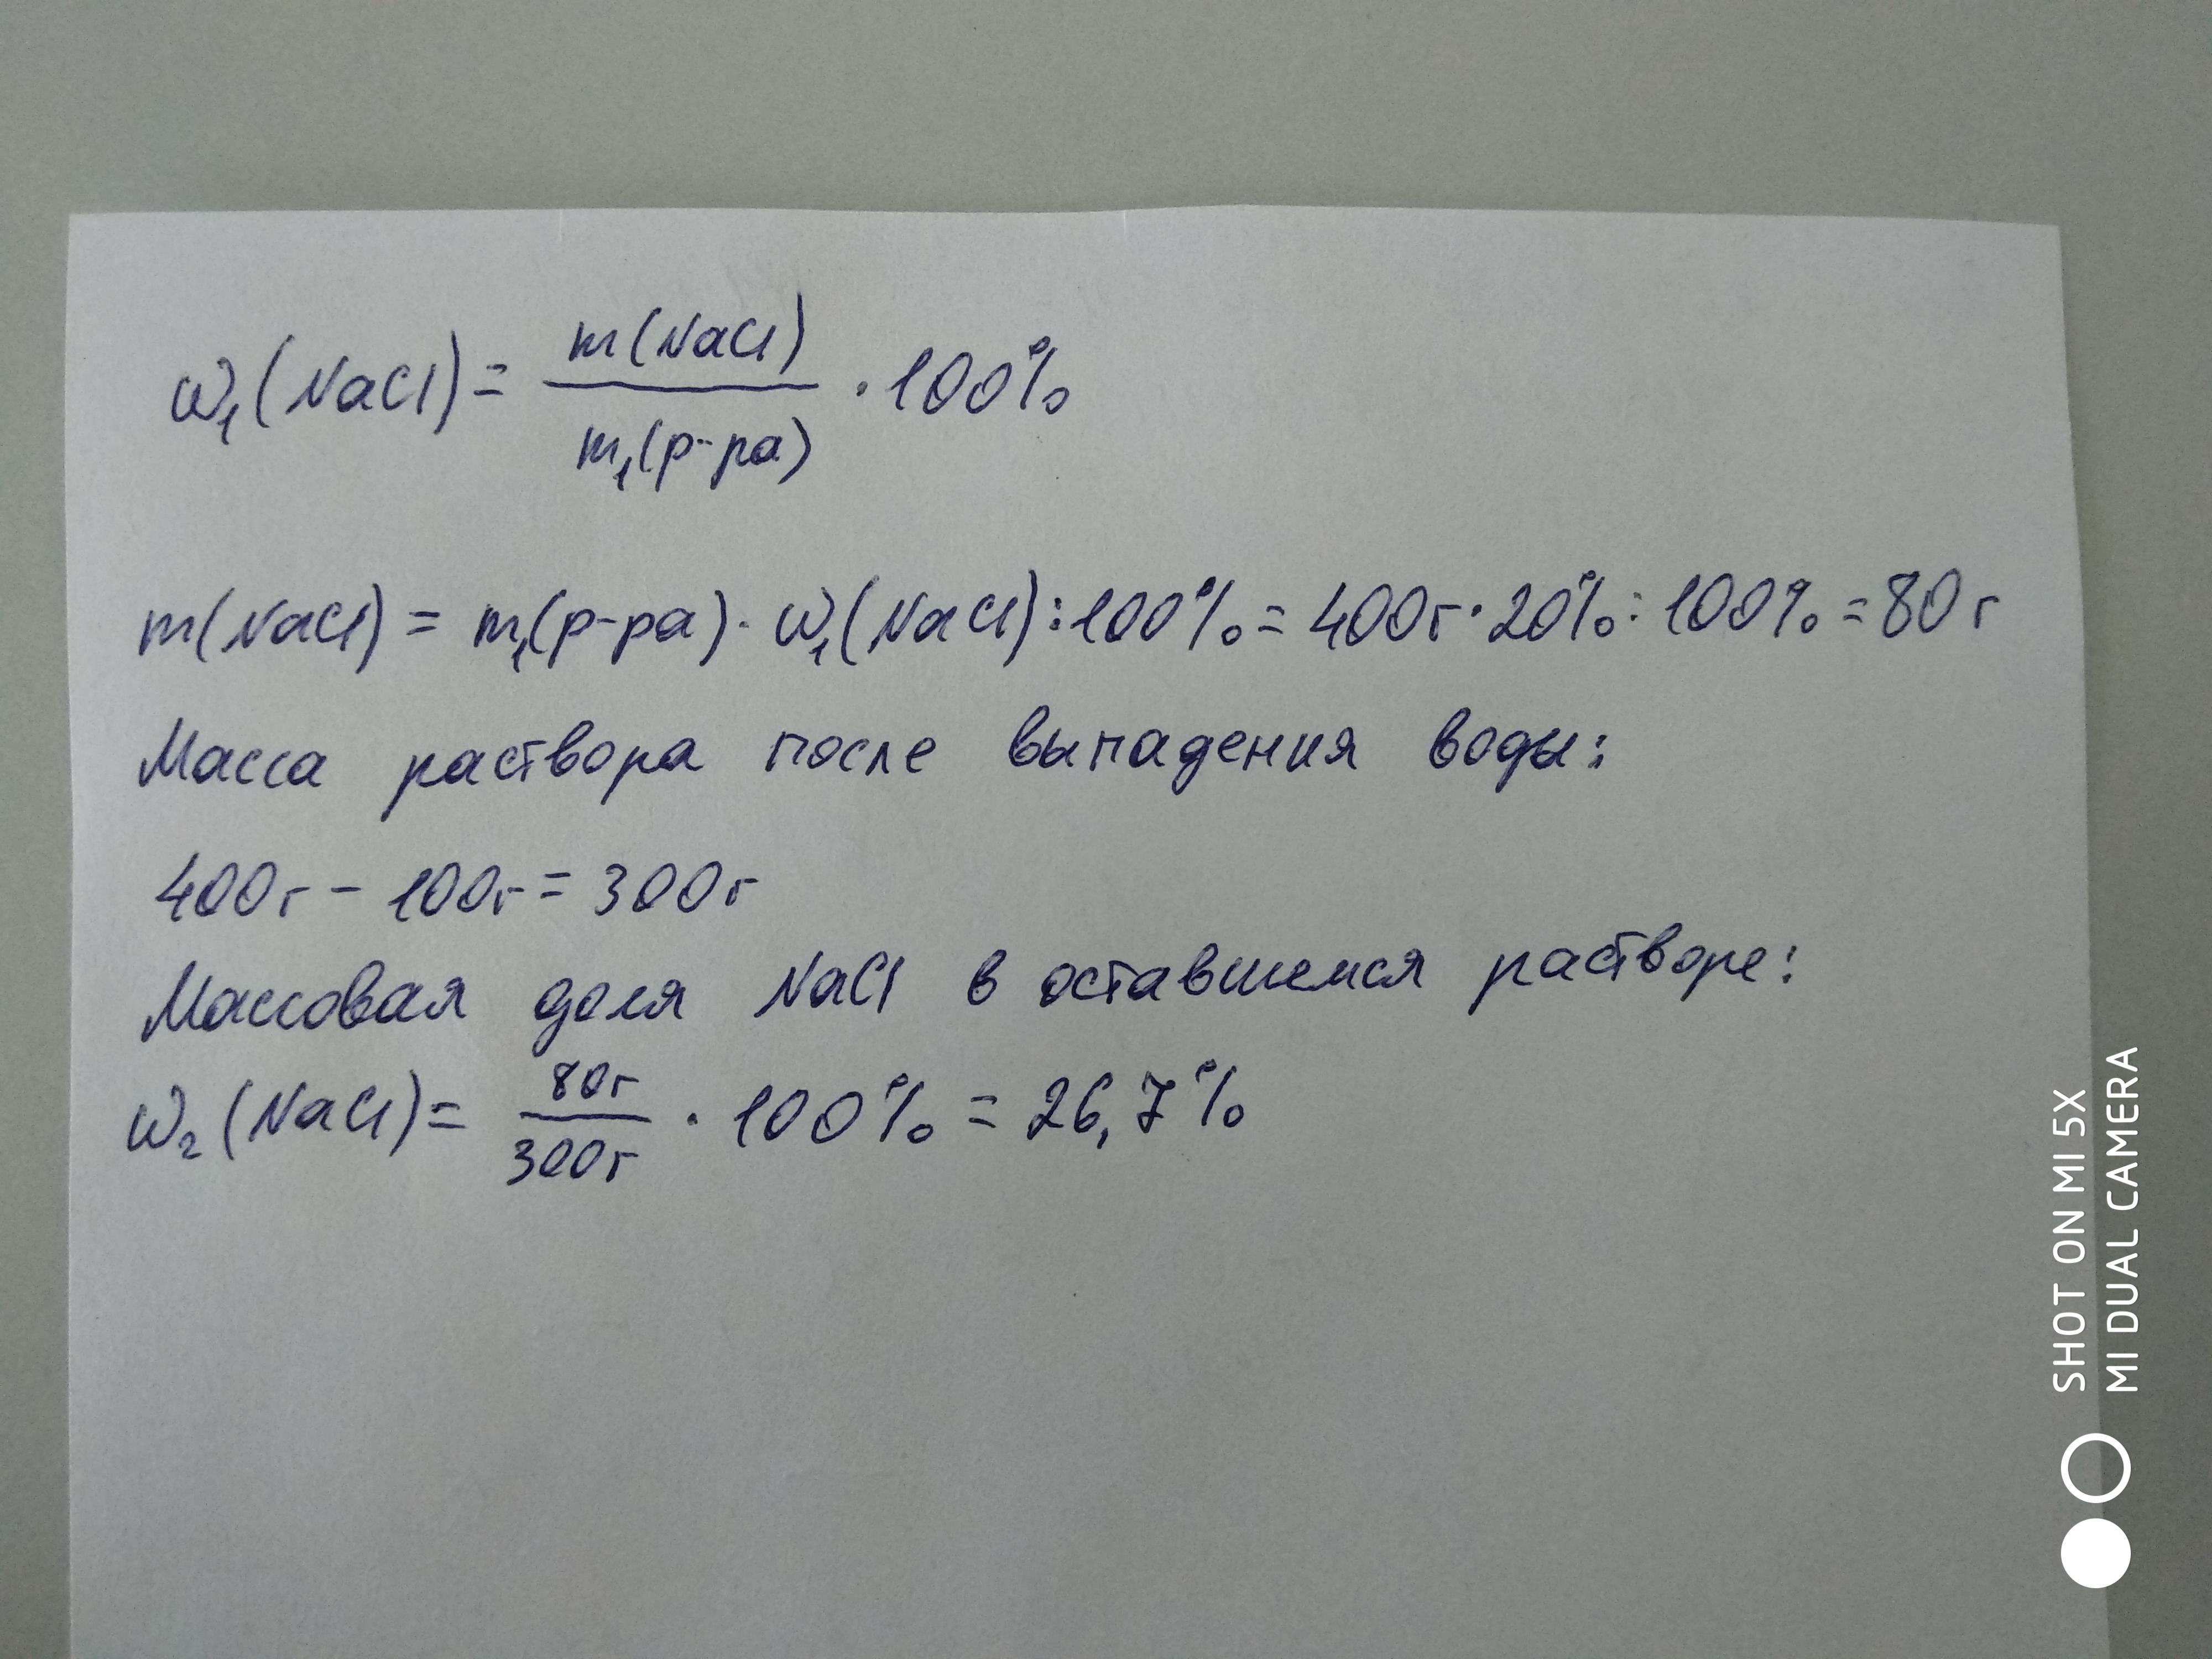 ω₁(NaCl) = m(NaCl) / m₁(р-ра) · 100%
m(NaCl) = m₁(р-ра) · ω₁(NaCl) : 100% = 400г · 20% : 100% = 80 г
Масса раствора после выпадения воды:
400г - 100г = 300г
Массовая доля NaCl в оставшемся растворе:
ω₂(NaCl) = 80г / 300г · 100% = 26,7%
SHOT ON MI 5X
MI DUAL CAMERA